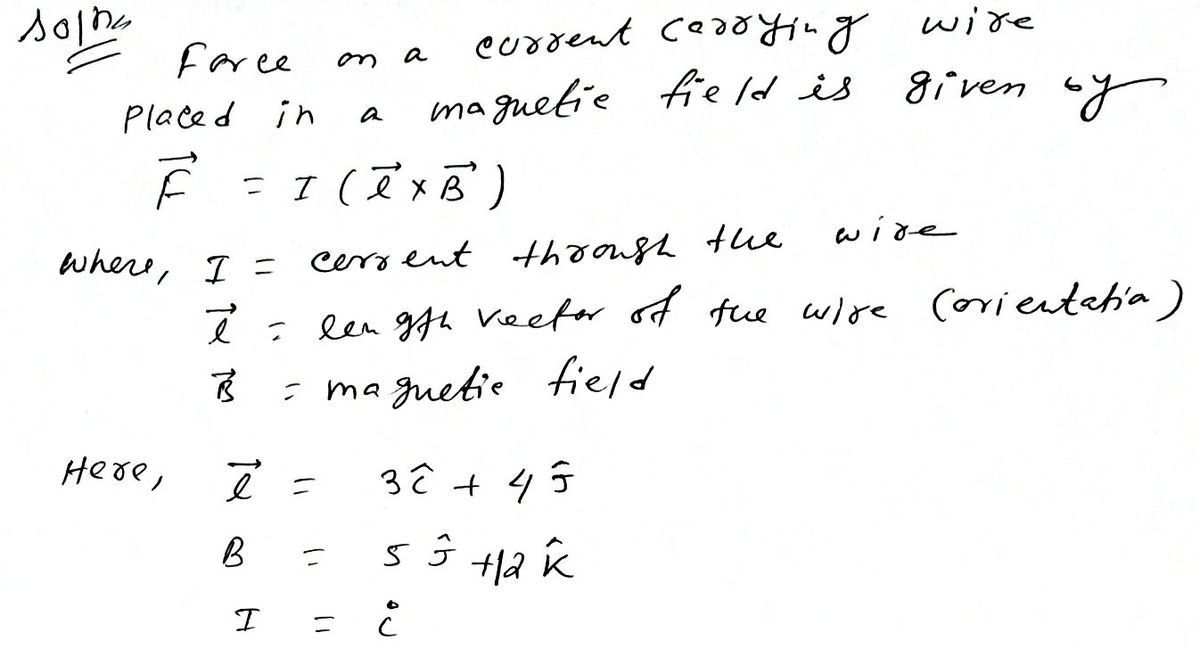 Soln
Force on a current carrying wire
placed in a magnetic field is given by
$\vec{F} = I (\vec{l} \times \vec{B})$
where, I = current through the wire
$\vec{l}$ = length vector of the wire (orientatia)
$\vec{B}$ = magnetic field
Here, $\vec{l} = 3\hat{i} + 4\hat{j}$
$B = 5\hat{j} + 12\hat{k}$
I = i